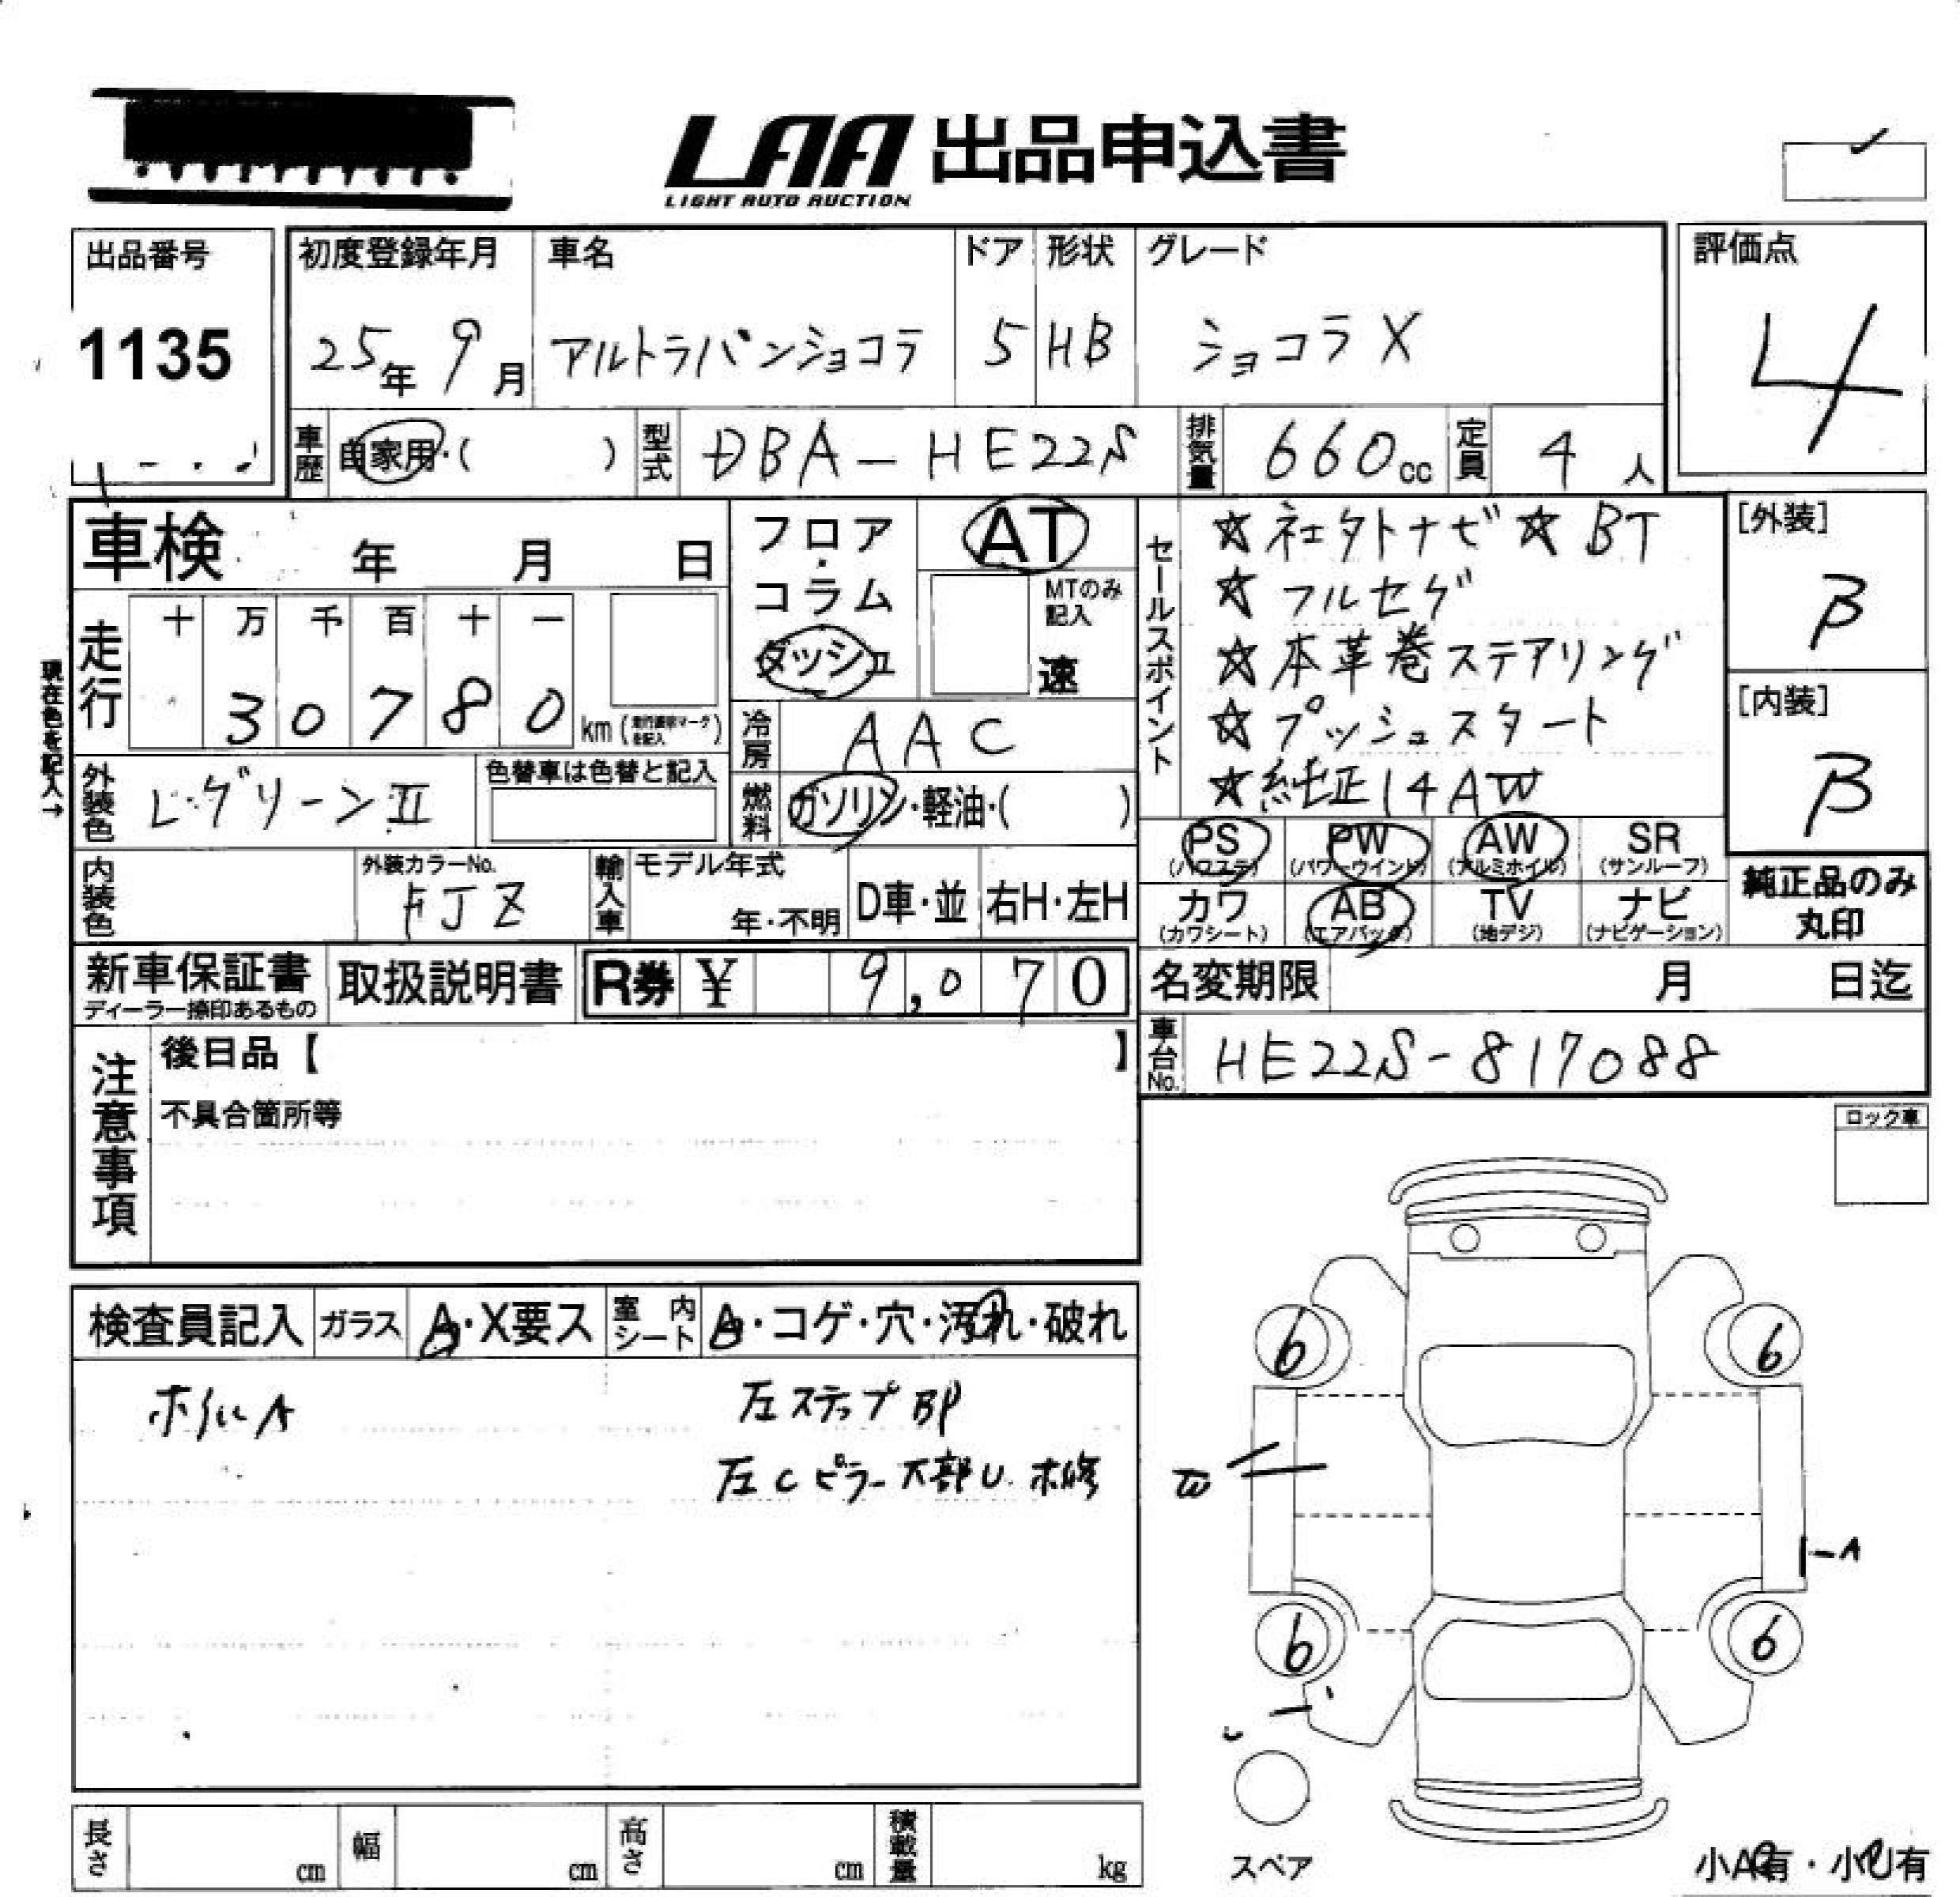 LAA 出品申込書
LIGHT AUTO AUCTION
出品番号
1135
初度登録年月
25年 9月
車名
アルトラパンショコラ
ドア
5
形状
HB
グレード
ショコラX
評価点
4
車歴 自家用・( )
型式 DBA-HE22S
排気量 660cc
定員 4人
車検 年 月 日
フロア・コラム ダッシュ
AT
MTのみ記入
速
セールスポイント
☆社外ナビ☆BT
☆フルセグ
☆本革巻ステアリング
☆プッシュスタート
☆純正14AW
[外装]
B
[内装]
B
現在色を記入→
走行
十 万 千 百 十 一
3 0 7 8 0 km
冷房 AAC
外装色 L・グリーンⅡ
色替車は色替と記入
燃料 ガソリン・軽油・( )
PS (パワステ)
PW (パワーウインド)
AW (アルミホイル)
SR (サンルーフ)
内装色
外装カラーNo.
FJZ
輸入車 モデル年式
年・不明
D車・並
右H・左H
カワ (カワシート)
AB (エアバッグ)
TV (地デジ)
ナビ (ナビゲーション)
純正品のみ丸印
新車保証書
ディーラー捺印あるもの
取扱説明書
R券 ¥ 9,070
名変期限 月 日迄
車台No. HE22S-817088
注意事項
後日品【 】
不具合箇所等
ロック車
検査員記入
ガラス A・X要ス
室内シート A・コゲ・穴・汚れ・破れ
ホイルA
左ステップBP
左Cピラー下部U.補修
6
6
W
A
6
6
U
スペア
小A有・小U有
長さ cm
幅 cm
高さ cm
積載量 kg